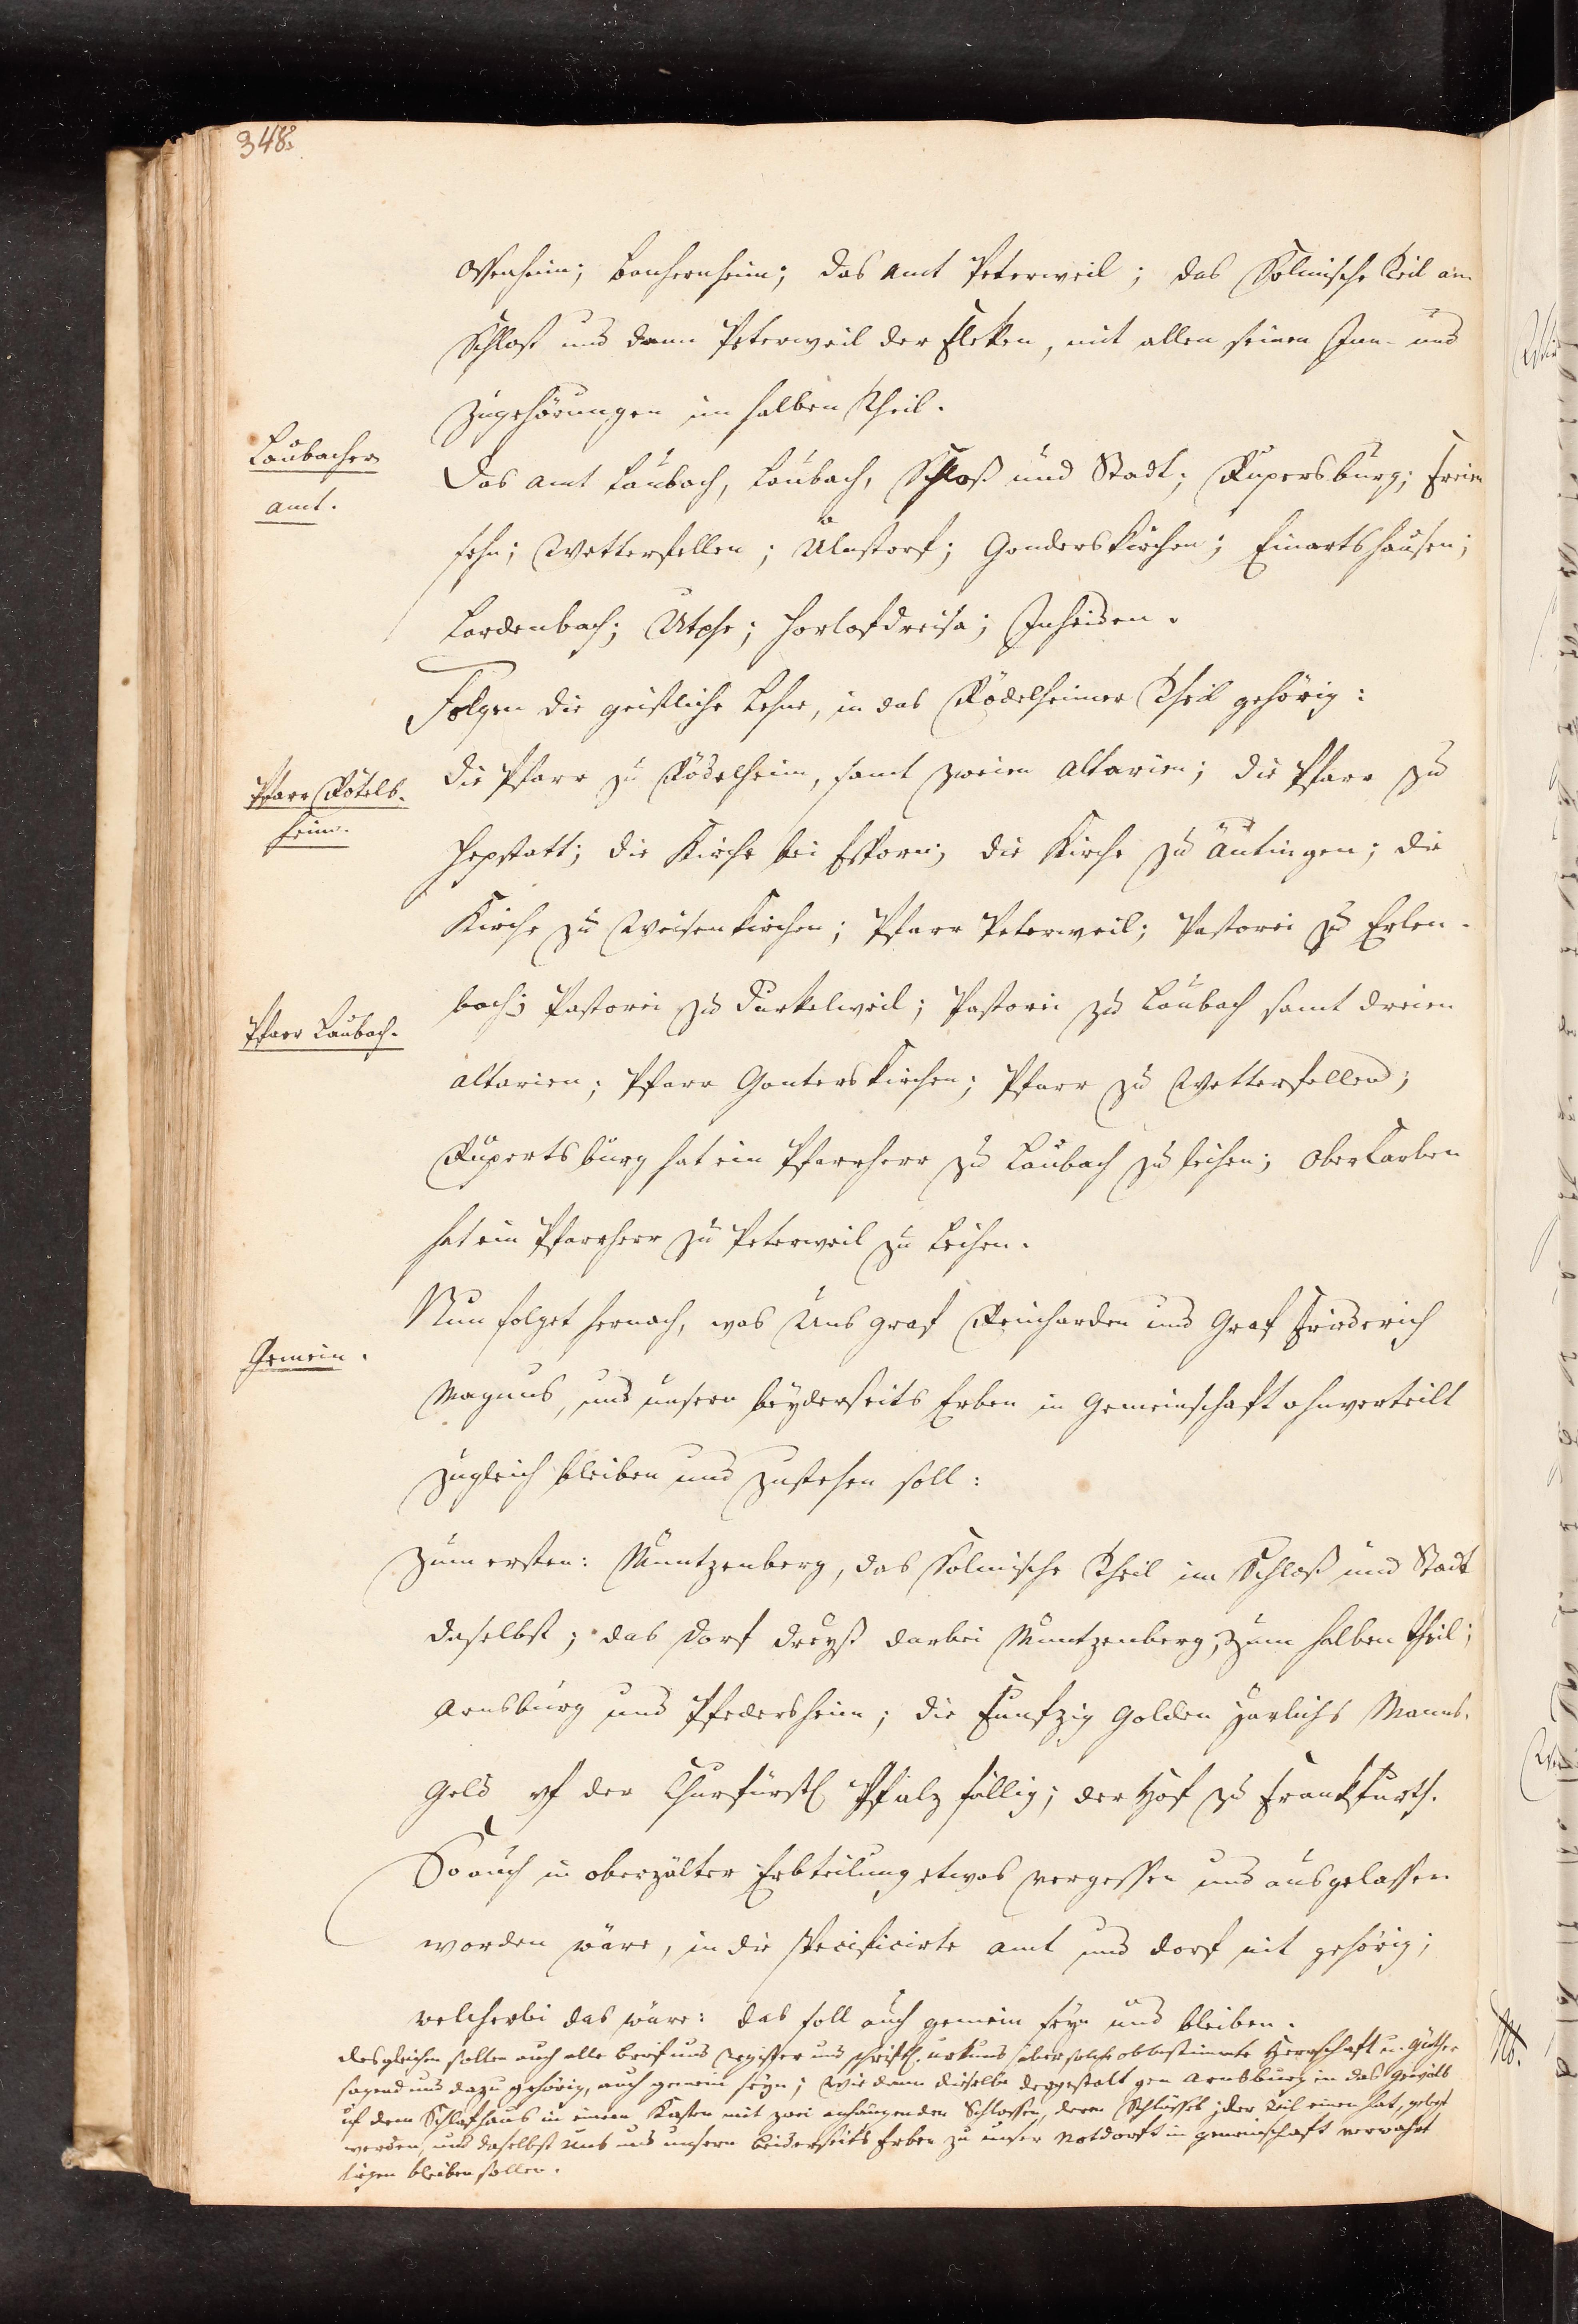 348.
Ossenheim; Bauhernheim; das Amt Peterweil; das Solmische Teil am
Schloß und dann Peterweil der Fleken, mit allen seinen Inn- und
Zugehörungen im halben Theil.
Laubacher
Amt.
Das Amt Laubach, Laubach, Schloß und Stadt; Rupersburg; Freien
sehn; Wetterfellen; Ulnstorf; Gonderskirchen; Einartshausen;
Lardenbach; Utphe; Horlofdreisa; Inheiden.
Folgen die geistliche Lehne, in das Rödelheimer Theil gehörig:
Pfarr Rötelb.
heim.
Die Pfarr zu Rödelheim, samt zweien Altarien; die Pfarr zu
Hepstatt; die Kirche bei Esforn; die Kirche zu Äutingen; die
Kirche zu Weisenkirchen; Pfarr Peterweil; Pastorei zu Erlen-
Pfarr Laubach.
bach; Pastorei zu Durkelweil; Pastorei zu Laubach samt dreien
Altarien; Pfarr Gonterskirchen; Pfarr zu Wetterfellen;
Rupertsburg hat ein Pfarrherr zu Laubach zu leihen; OberCarben
hat ein Pfarrherr zu Peterweil zu leihen.
Gemein.
Nun folget hernach, was Uns Graf Reinharden und Graf Friederich
Magnus, und unsern beyderseits Erben in Gemeinschaft ohnverteilt
zugleich bleiben und zustehen soll:
Zum ersten: Müntzenberg, das Solmische Theil im Schloß und Stadt
daselbst; das Dorf Dreyß darbei Müntzenberg, zum halben Theil;
Arnsburg und Pfedersheim; die Funfzig Golden jarlichs Manns-
Geld uf der Churfürstl Pfalz fällig; der Hof zu Frankfurth.
So auch in oberzälter Erbteilung etwas vergessen und ausgelassen
worden wäre, in die specificirte Amt und Dorf nit gehörig;
welcherlei das wäre: das soll auch gemein seyn und bleiben.
Desgleichen sollen auch alle brief und Register und schriftl. Urkund über solche obbestimmte Herrschaft u. Güther
sagend und dazu gehörig, auch gemein seyn; Wie dann dieselbe dergestalt gen Arnsburg in das Gewölb
uf dem Schlafhaus in einem Kasten mit zwei anhangenden Schlossen, deren Schlüssel jeder Teil einen hat, gelegt
werden, und daselbst Uns und unsern beiderseits Erben zu unser Notdorft in gemeinschaft verwahrt
liegen bleiben sollen.